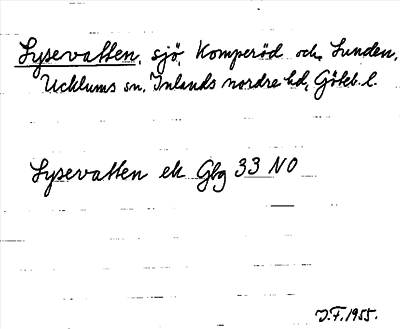 Lysevatten, sjö, Komperöd och Lunden,
Ucklums sn, Inlands nordre hd, Göteb. l.
Lysevatten ek Gbg 33 NO
J.F. 1955.